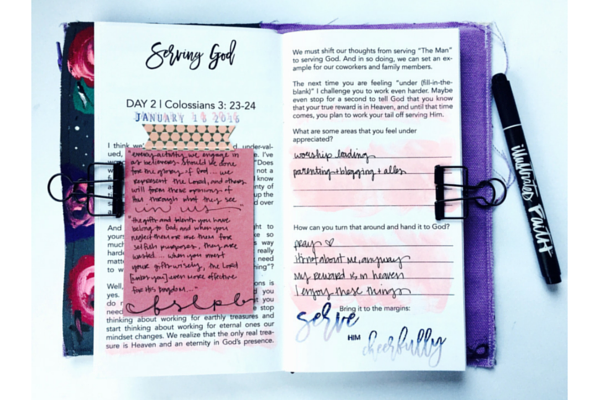 Serving God
DAY 2 | Colossians 3: 23-24
JANUARY 18 2016
I think we
under-val-
ued,
I've
"Does
not a
I know
plenty of
up the
d over
"every activity we engage in
as believers should be done
for the glory of God... we
represent the Lord, and others
will form these opinions of
Him through what they see
in us."
"the gifts and talents you have
belong to God, and when you
neglect them or use them for
selfish purposes, they are
wasted... when you invest
your gifts wisely, the Lord
your even more effective
for His kingdom..."
And
young
much
hard
really
matter
to w
thing"?
Well,
yes.
do
you
need
the stop
thinking about working for earthly treasures and
start thinking about working for eternal ones our
mindset changes. We realize that the only real trea-
sure is Heaven and an eternity in God's presence.
We must shift our thoughts from serving "The Man"
to serving God. And in so doing, we can set an ex-
ample for our coworkers and family members.
The next time you are feeling "under (fill-in-the-
blank)" I challenge you to work even harder. Maybe
even stop for a second to tell God that you know
that your true reward is in Heaven, and until that time
comes, you plan to work your tail off serving Him.
What are some areas that you feel under
appreciated?
worship leading
parenting + blogging + allas
How can you turn that around and hand it to God?
pray ♡
it's not about me, anyway
my reward is in heaven
I enjoy these things
Bring it to the margins:
serve
HIM
cheerfully
illustrated FAITH